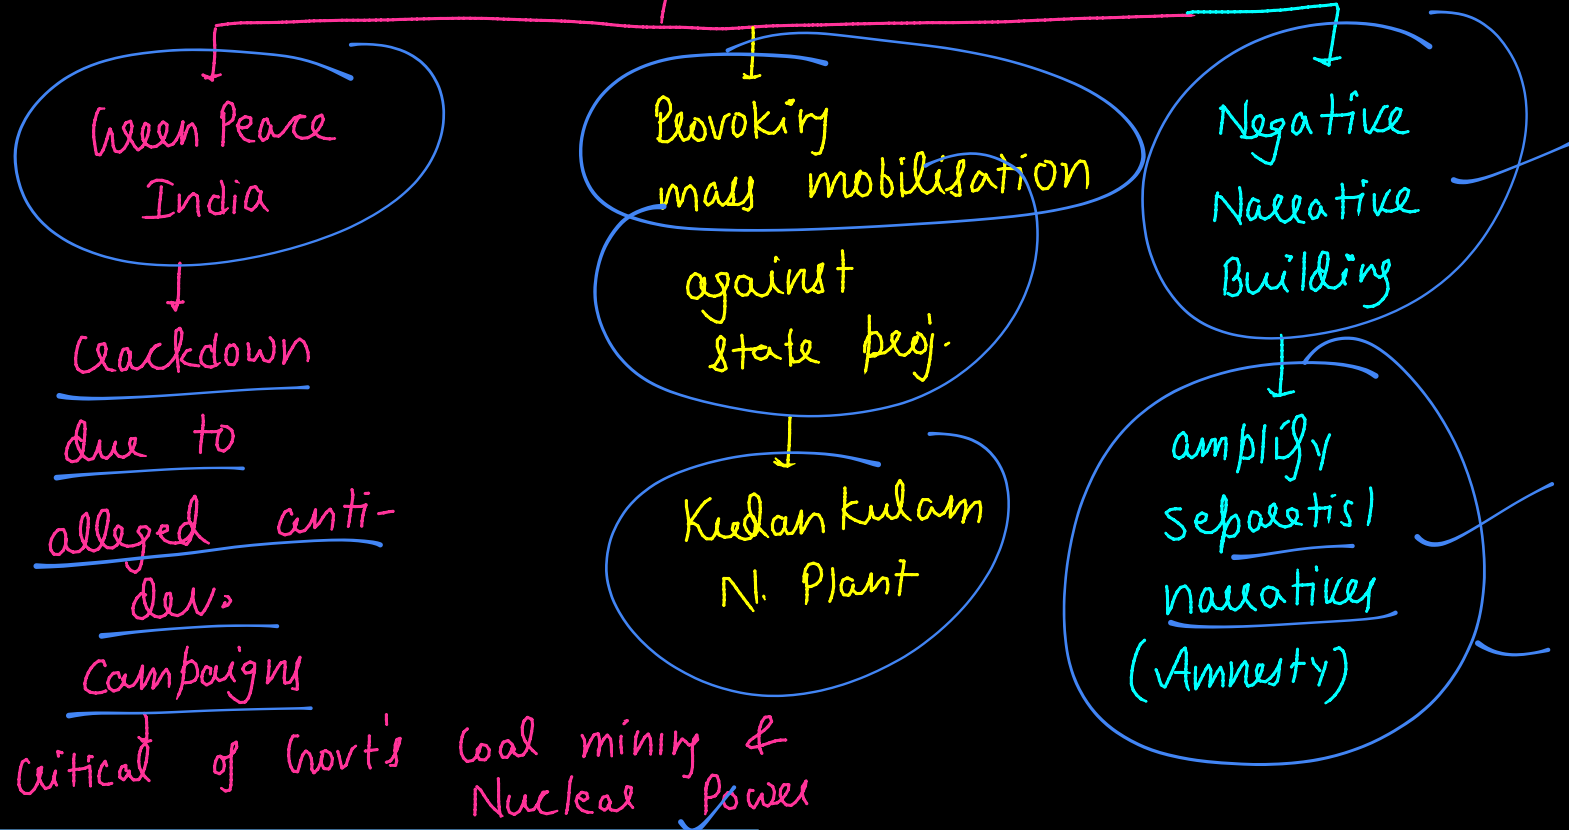 Green Peace
India
Crackdown
due to
alleged anti-
dev.
Campaigns
Critical of Govt's Coal mining &
Nuclear Power
Provoking
mass mobilisation
against
state proj.
Kudankulam
N. Plant
Negative
Narrative
Building
amplify
separatist
narratives
(Amnesty)